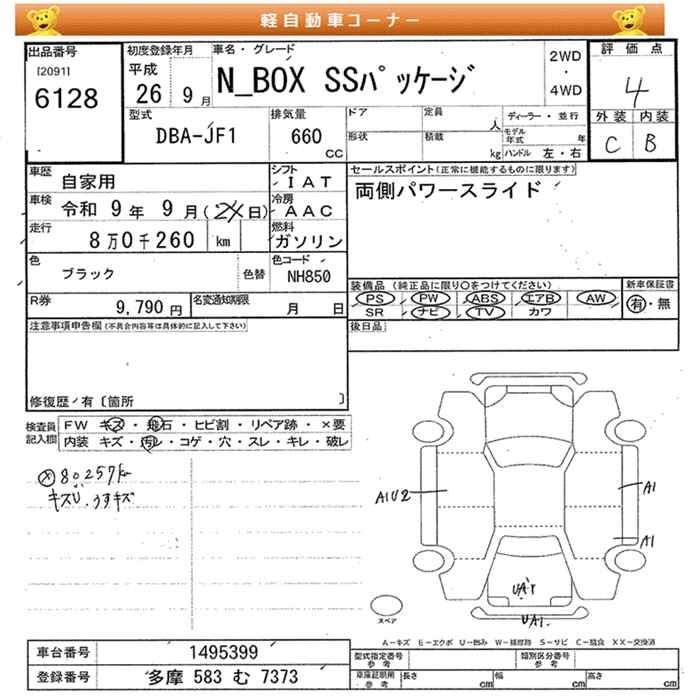 軽自動車コーナー
出品番号
[2091]
6128
初度登録年月
平成
26 9月
車名・グレード
N_BOX SSパッケージ
2WD
・
4WD
評価点
4
外装 内装
C B
型式
DBA-JF1
排気量
660
CC
ドア
形状
定員
人
積載
kg
ディーラー・並行
モデル年式 年
ハンドル 左・右
車歴
自家用
シフト
IAT
車検
令和 9年 9月( 日)
冷房
AAC
走行
8万0千260 km
燃料
ガソリン
色
ブラック
色替
色コード
NH850
R券
9,790円
名変通知期限
月 日
セールスポイント(正常に機能するものに限ります)
両側パワースライド
装備品(純正品に限り○をつけてください)
PS PW ABS エアB AW
SR ナビ TV カワ
新車保証書
有・無
後日品
注意事項申告欄(不具合内容等は具体的に記入して下さい)
修復歴/有〔箇所 〕
検査員
記入欄
FW キズ・飛石・ヒビ割・リペア跡・×要
内装 キズ・汚レ・コゲ・穴・スレ・キレ・破レ
80257km
キズU、うすキズ
A1U2
A1
A1
UA1
スペア
A-キズ E-エクボ U-凹み W-補修跡 S-サビ C-腐食 XX-交換済
車台番号
1495399
登録番号
多摩 583 む 7373
型式指定番号
参考
類別区分番号
参考
車庫証明用
参考
長さ cm
幅 cm
高さ cm